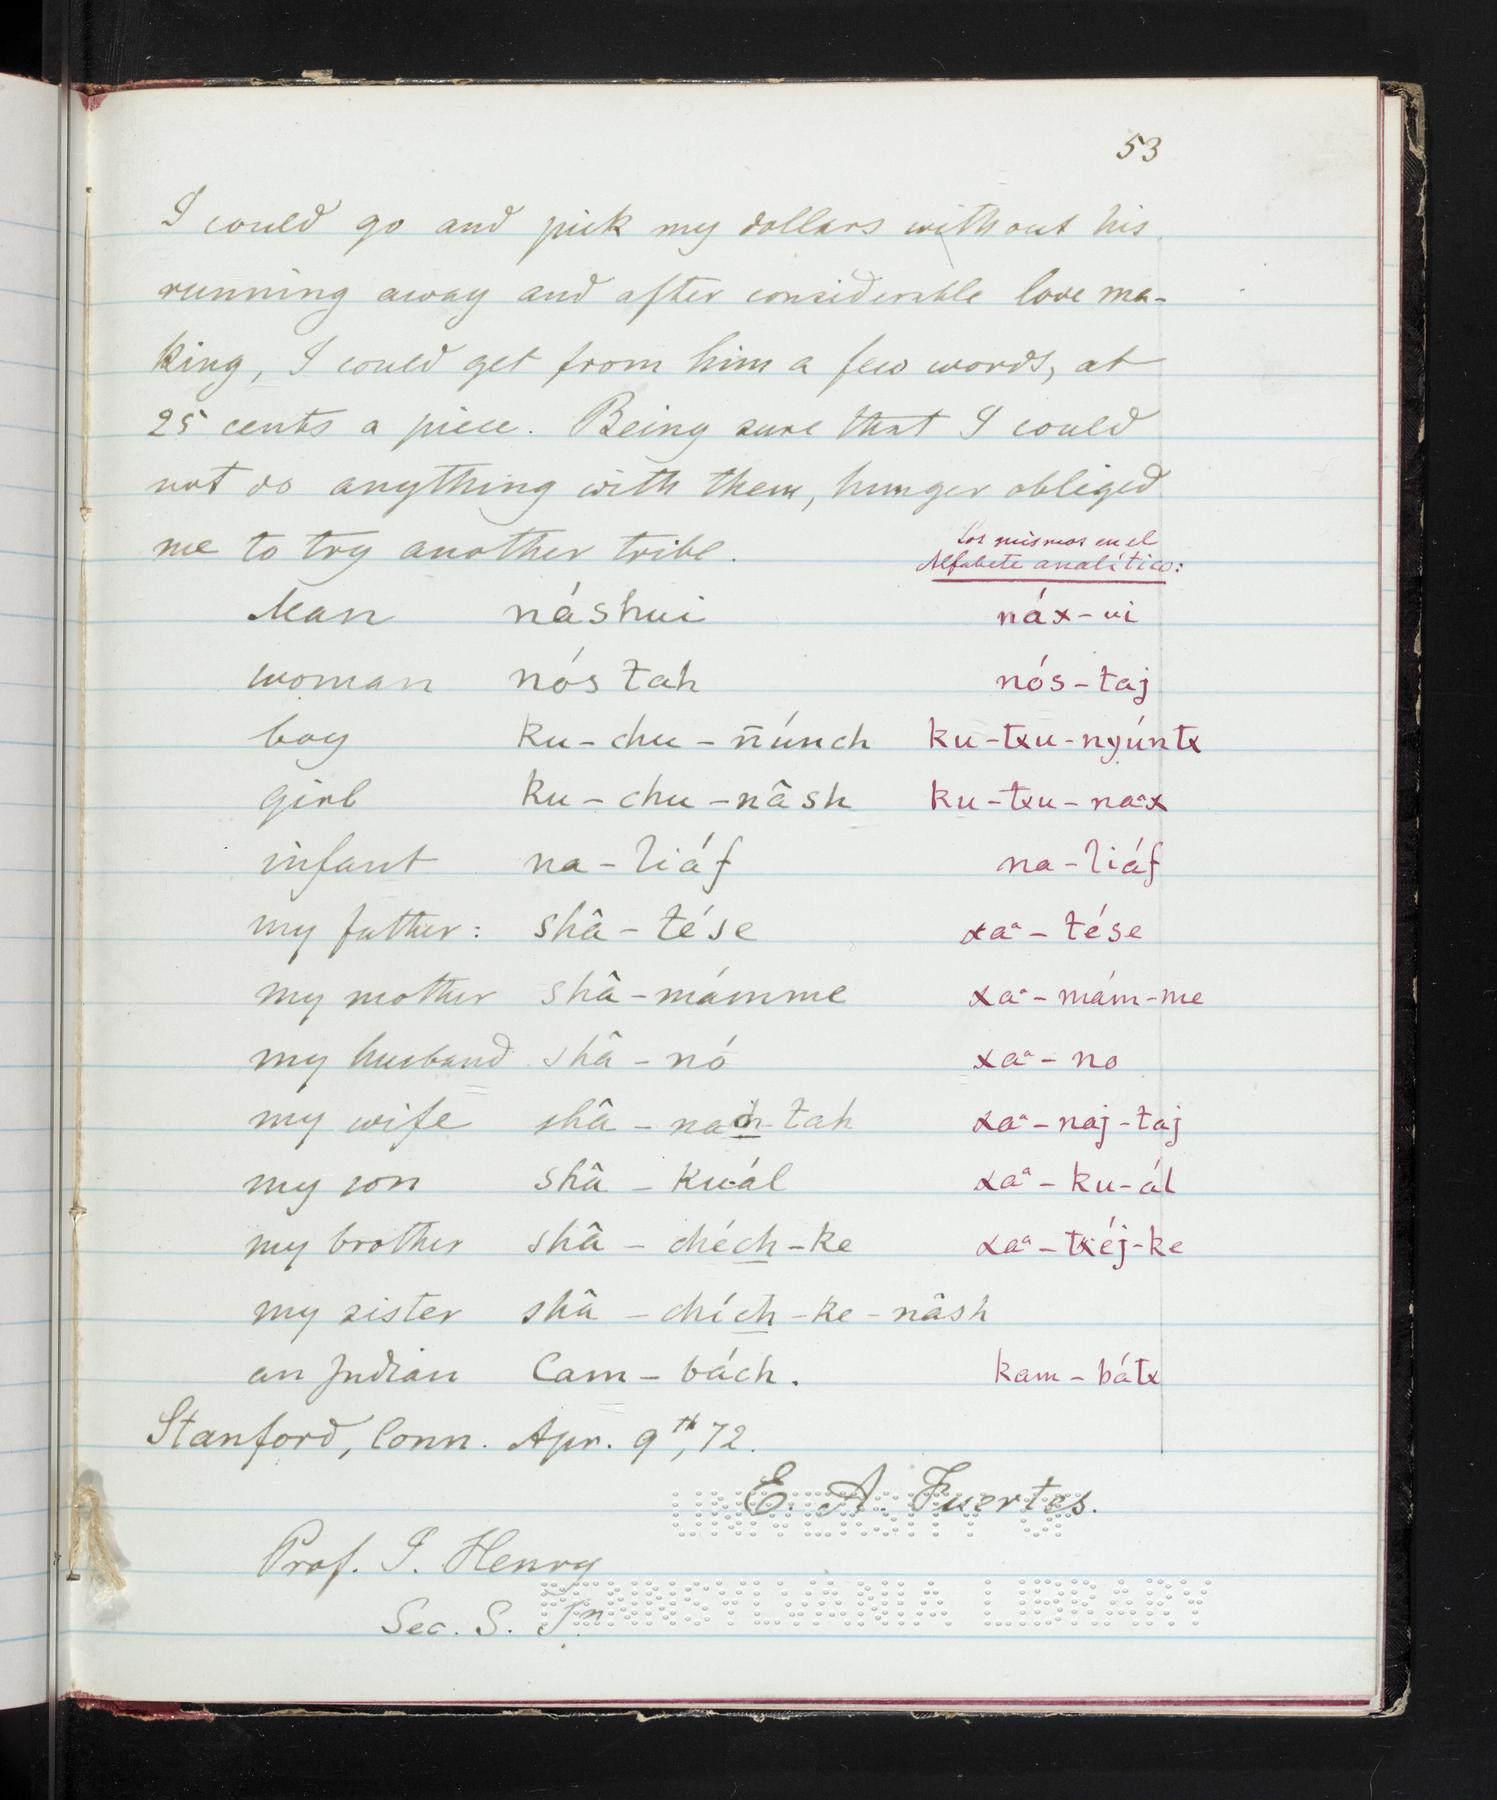 53
I could go and pick my dollars without his
running away and after considerable love ma-
king, I could get from him a few words, at
25 cents a piece. Being sure that I could
not do anything with them, hunger obliged
me to try another tribe.
Los mismos en el
Alfabeto analítico:
Man náshui náx-ui
woman nós tah nós-taj
boy ku-chu-ñúnch ku-txu-nyúntx
girl ku-chu-nâsh ku-txu-naªx
infant na-liáf na-liáf
my father: shâ-tése xaª-tése
my mother shâ-mámme xaª-mám-me
my husband shâ-nó xaª-no
my wife shâ-nach-tah xaª-naj-taj
my son shâ-ku-ál xaª-ku-ál
my brother shâ-chéch-ke xaª-txéj-ke
my sister shâ-chích-ke-nâsh
an Indian Cam-bách. kam-bátx
Stanford, Conn. Apr. 9th, 72.
E. A. Fuertes.
UNIVERSITY OF
Prof. J. Henry
PENNSYLVANIA LIBRARY
Sec. S. I.n